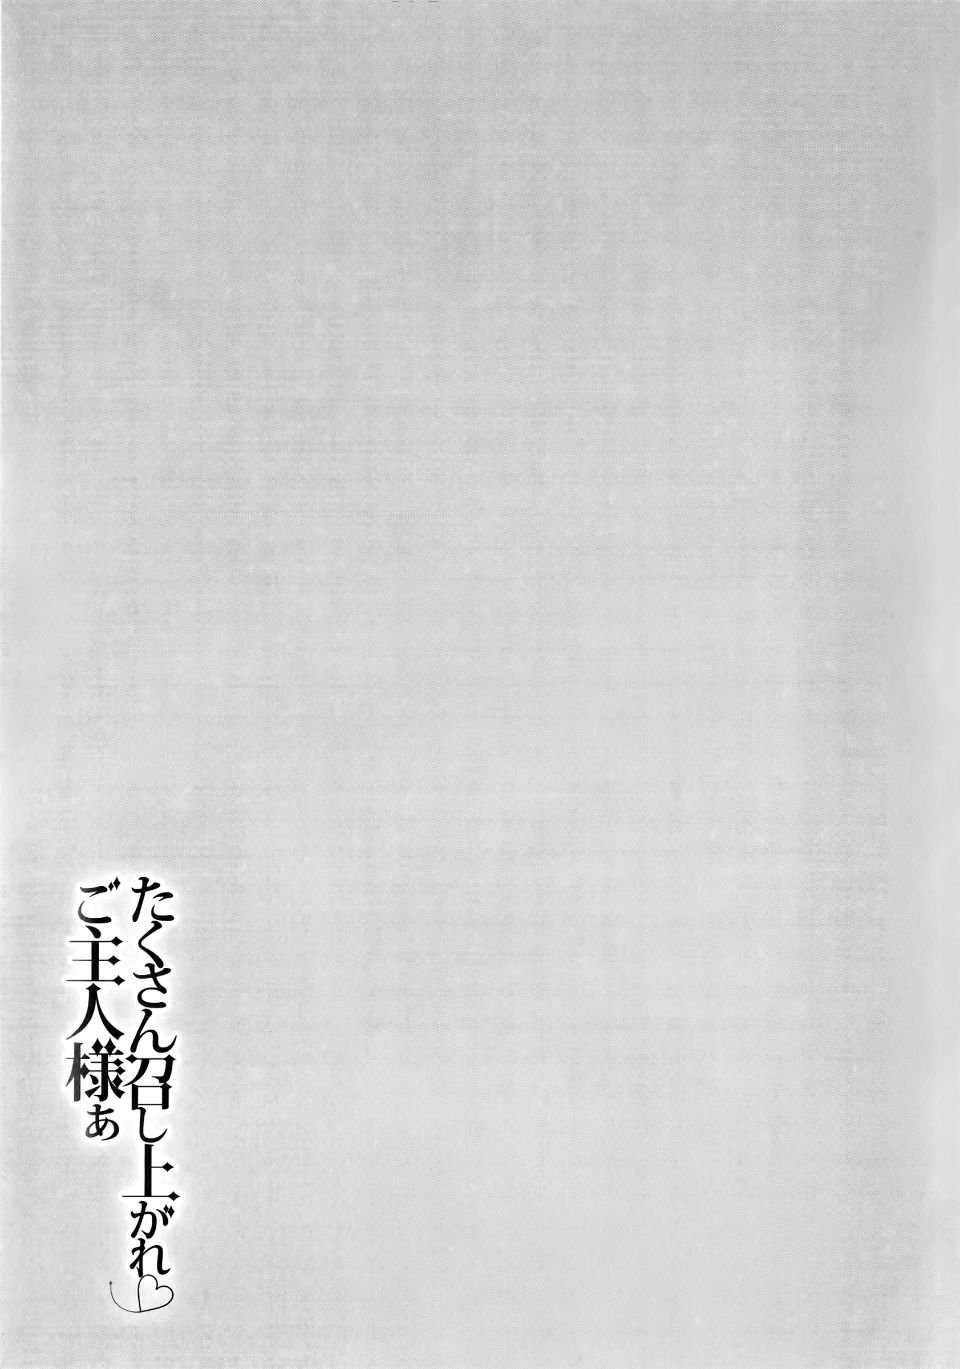 たくさん召し上がれ♡
ご主人様ぁ